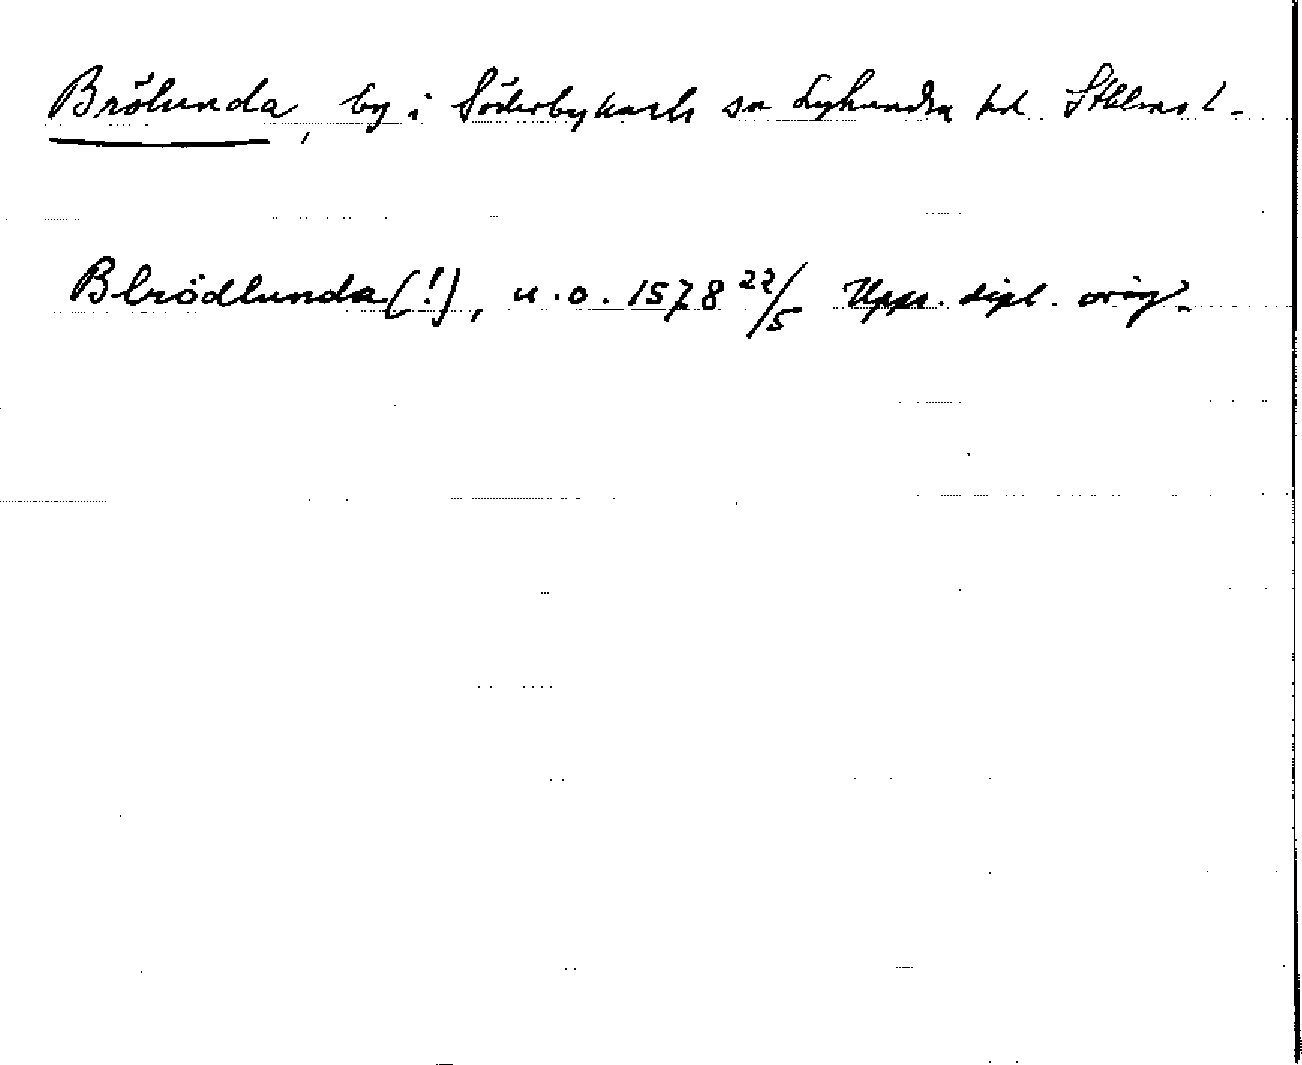 Brölunda, by i Söderbykarls sn Lyhundra hd Sthlms l.
Blrödlunda (!), u.o. 1578 22/5 Upps. dipl. orig.